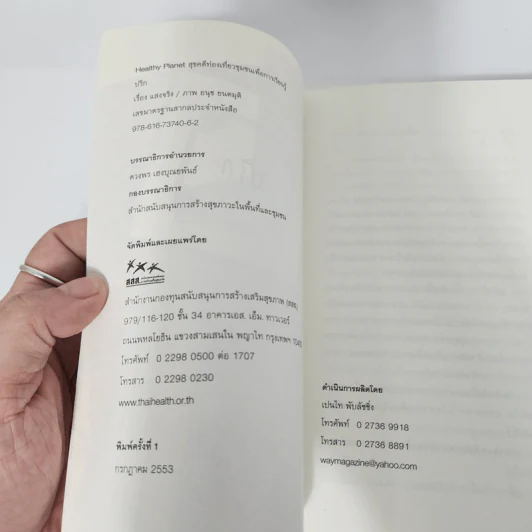 Healthy Planet สุขคดีท่องเที่ยวชุมชนเพื่อการเรียนรู้
ปริก
เรื่อง แสงจริง / ภาพ อนุช ยนตมุติ
เลขมาตรฐานสากลประจำหนังสือ
978-616-73740-6-2
บรรณาธิการอำนวยการ
ดวงพร เฮงบุณยพันธ์
กองบรรณาธิการ
สำนักสนับสนุนการสร้างสุขภาวะในพื้นที่และชุมชน
จัดพิมพ์และเผยแพร่โดย
สสส.
สำนักงานกองทุนสนับสนุนการสร้างเสริมสุขภาพ (สสส.)
979/116-120 ชั้น 34 อาคารเอส. เอ็ม. ทาวเวอร์
ถนนพหลโยธิน แขวงสามเสนใน พญาไท กรุงเทพฯ
โทรศัพท์ 0 2298 0500 ต่อ 1707
โทรสาร 0 2298 0230
www.thaihealth.or.th
พิมพ์ครั้งที่ 1
กรกฎาคม 2553
ดำเนินการผลิตโดย
เปนไท พับลิชชิ่ง
โทรศัพท์ 0 2736 9918
โทรสาร 0 2736 8891
waymagazine@yahoo.com